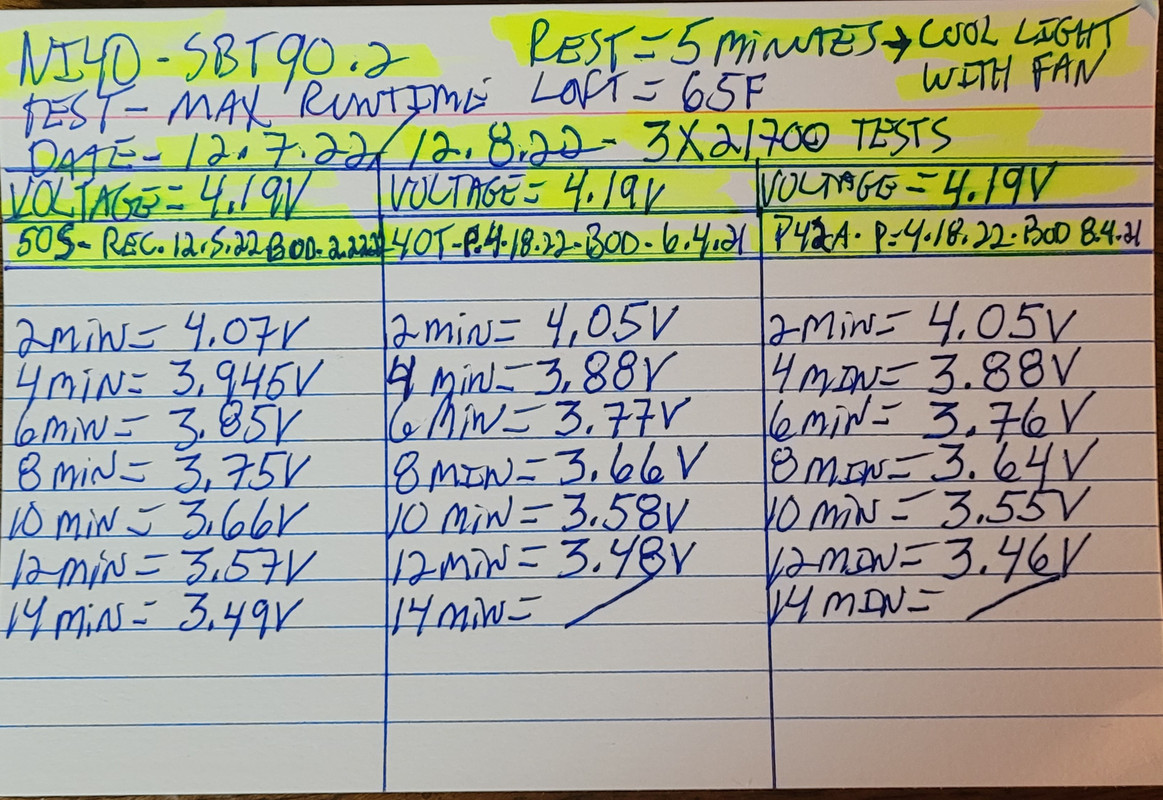 NI4D - SBT90.2 REST = 5 MINUTES → COOL LIGHT WITH FAN
TEST - MAX RUNTIME LOFT = 65F
DATE - 12.7.22 / 12.8.22 - 3X21700 TESTS
VOLTAGE = 4.19V VOLTAGE = 4.19V VOLTAGE = 4.19V
50S - REC. 12.5.22 BOD. 40T - P.4.18.22 - BOD - 6.4.21 P42A - P=4.18.22 - BOD 8.4.21
2 min = 4.07V 2 min = 4.05V 2 min = 4.05V
4 min = 3.945V 4 min = 3.88V 4 min = 3.88V
6 min = 3.85V 6 min = 3.77V 6 min = 3.76V
8 min = 3.75V 8 min = 3.66V 8 min = 3.64V
10 min = 3.66V 10 min = 3.58V 10 min = 3.55V
12 min = 3.57V 12 min = 3.48V 12 min = 3.46V
14 min = 3.49V 14 min = 14 min =